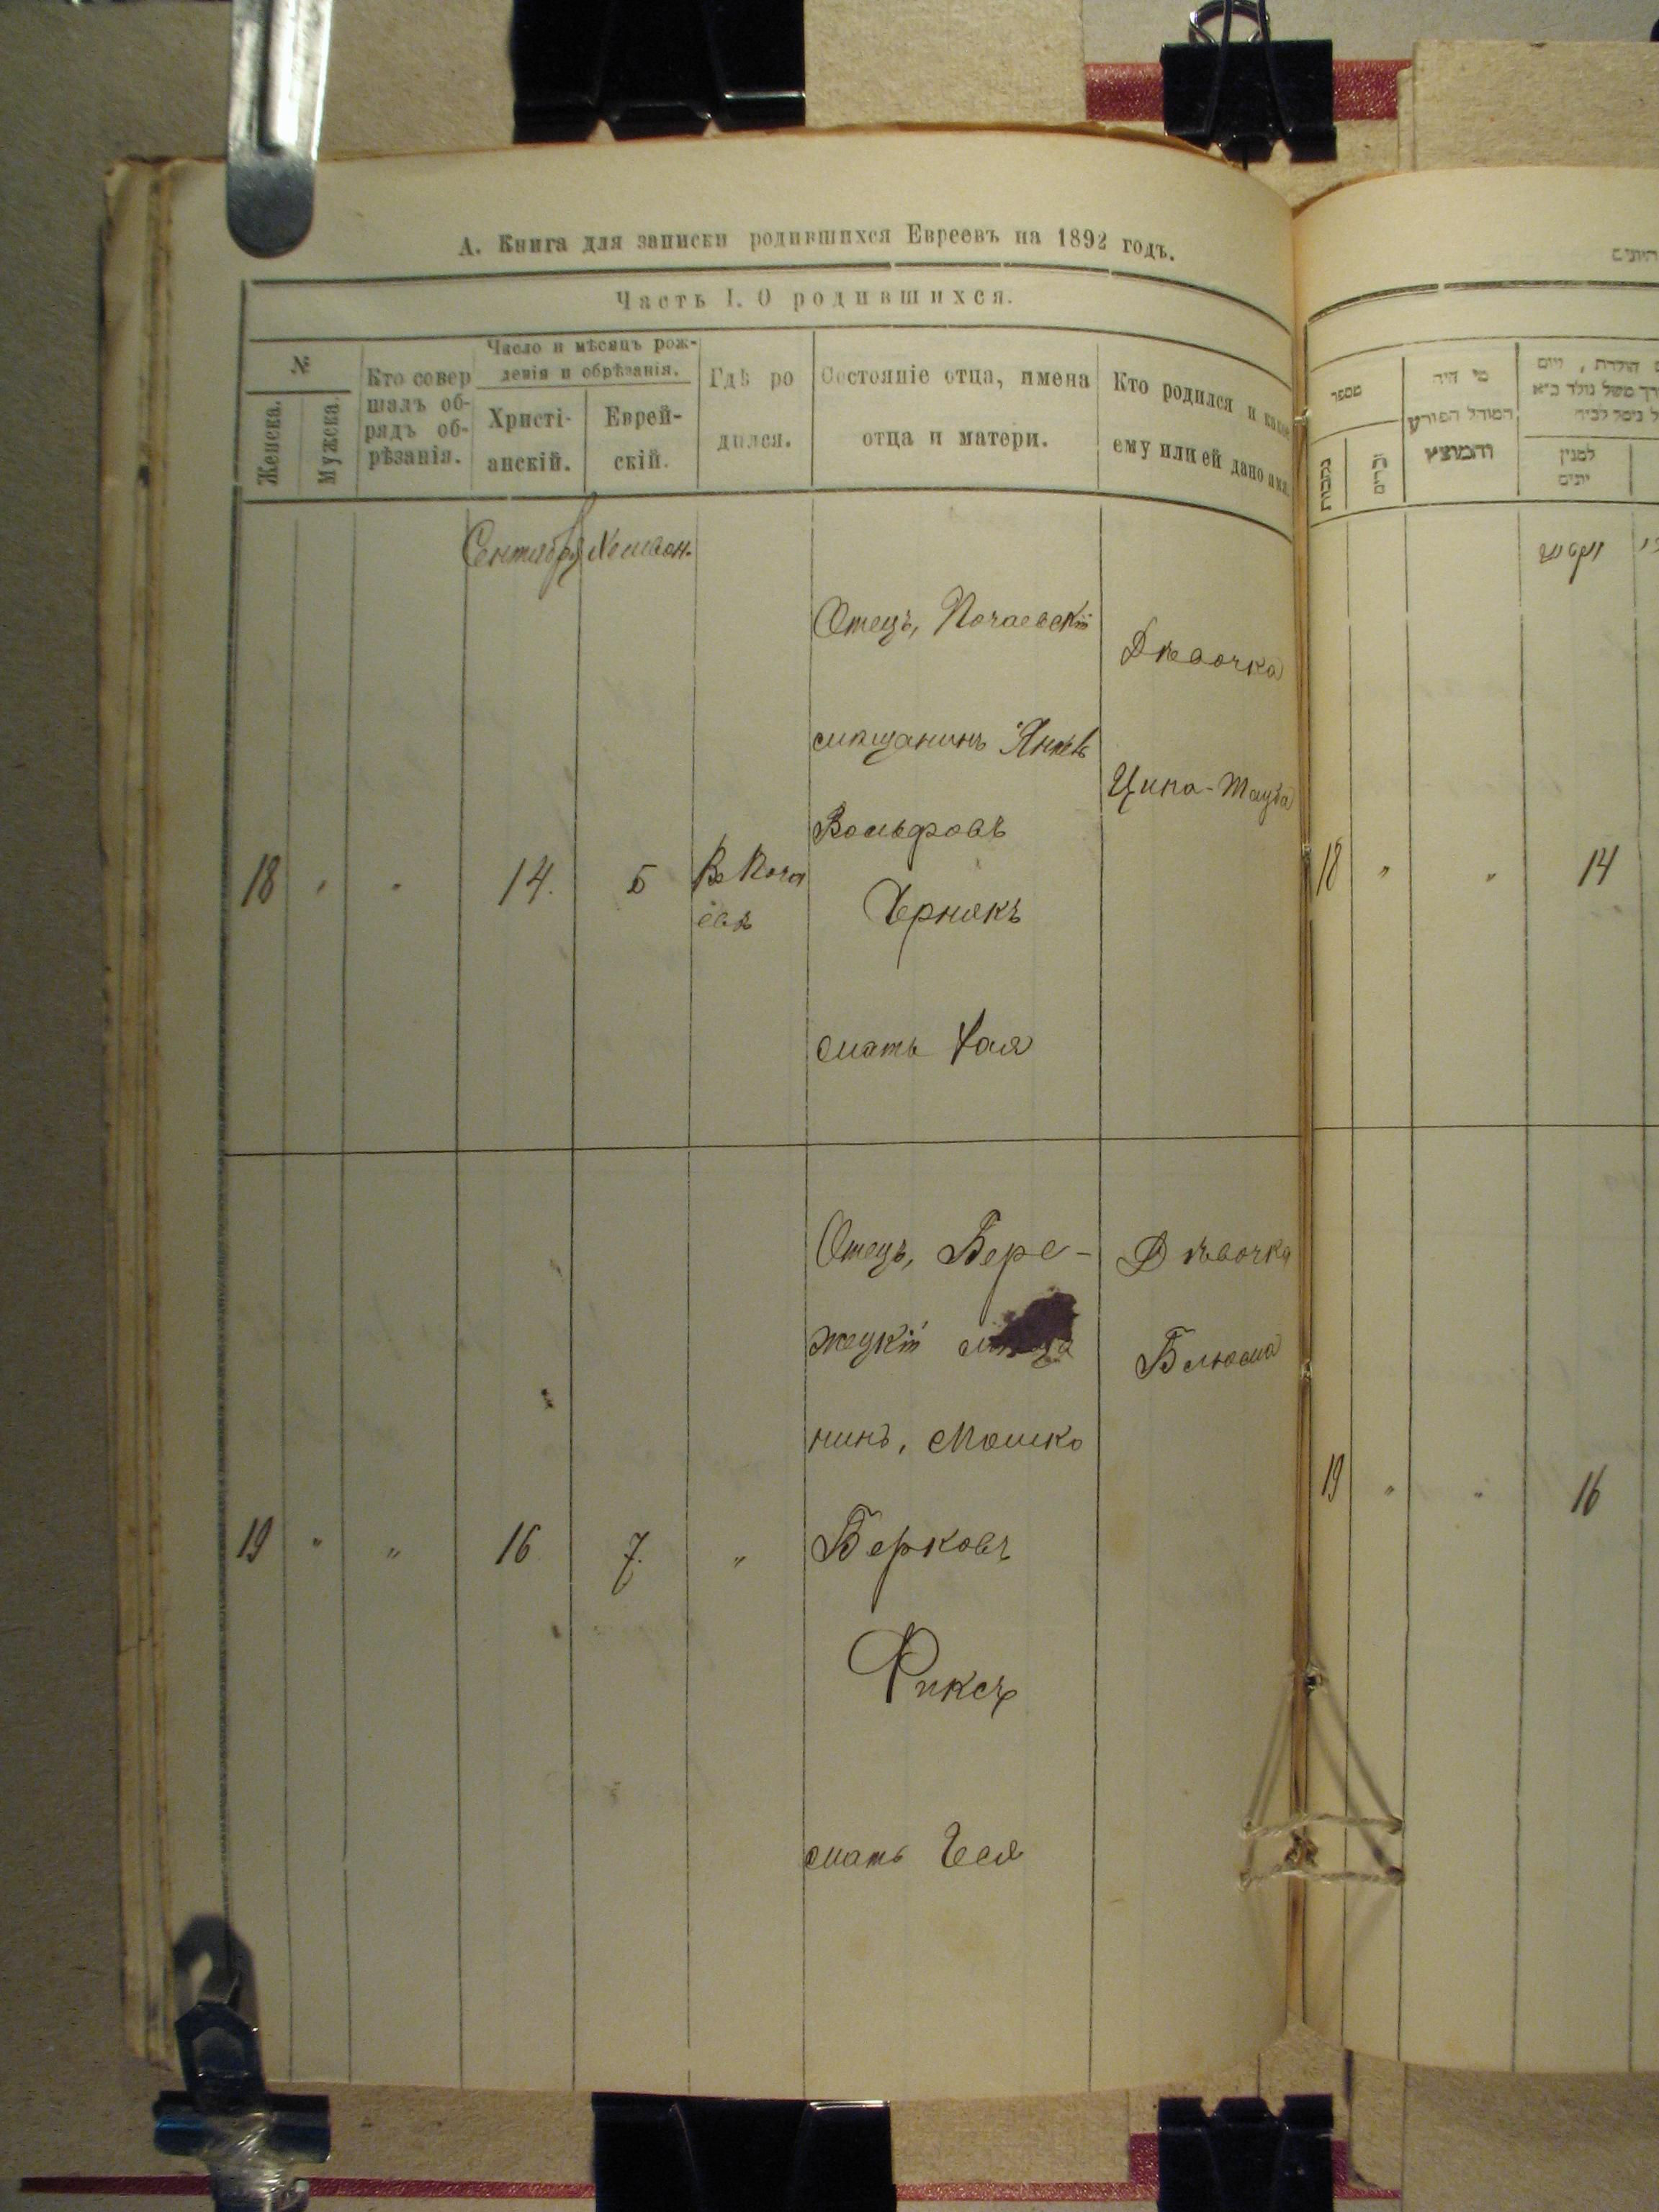 А. Книга для записки родившихся Евреевъ на 1892 годъ.
Часть I. О родившихся.
№
Женска.
Мужска.
Кто совер
шалъ об-
рядъ об-
рѣзанія.
Число и мѣсяцъ рож-
денія и обрѣзанія.
Христі-
анскій.
Еврей-
скій.
Гдѣ ро
дился.
Состояніе отца, имена
отца и матери.
Кто родился и какое
ему или ей дано имя.
Сентября Хешван.
18 " " 14. 5
Въ Поча
евѣ
Отецъ, Почаевскій
мѣщанинъ Янкевъ
Вольфовъ
Чернякъ
мать Хая
Дѣвочка
Ципа-Тауба
19 " " 16 7. "
Отецъ, Бере-
жецкій
нинъ, Мошко
Берковъ
Фиксъ
мать Еся
Дѣвочка
Блюма
מספר
נקבות
זכרים
מי היה
המוהל הפורע
והמוצץ
למנין
יונים
18 " " 14
19 " " 16